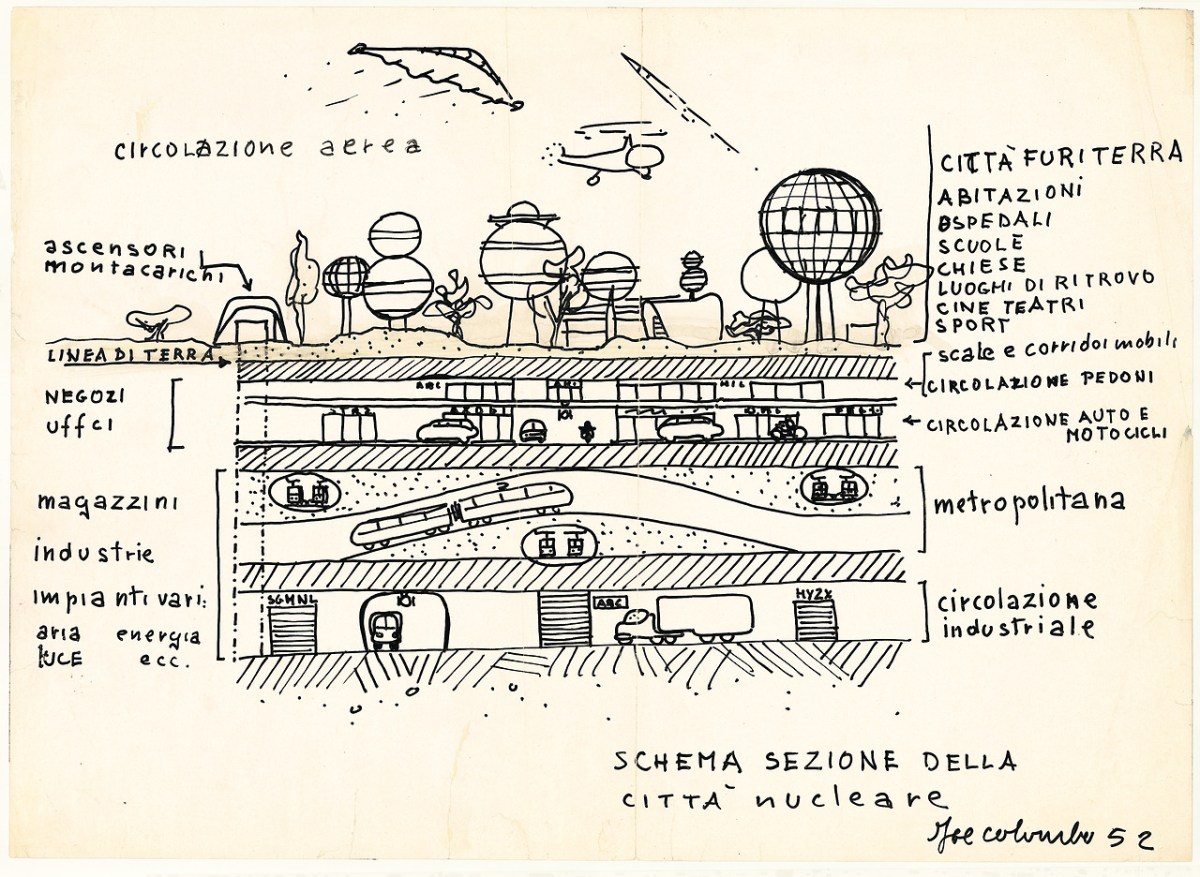 circolazione aerea
ascensori
montacarichi
LINEA DI TERRA
NEGOZI
uffci
magazzini
industrie
impianti vari:
aria energia
LUCE ecc.
CITTÀ FURITERRA
ABITAZIONI
OSPEDALI
SCUOLE
CHIESE
LUOGHI DI RITROVO
CINE TEATRI
SPORT
scale e corridoi mobili
CIRCOLAZIONE PEDONI
CIRCOLAZIONE AUTO E
MOTOCICLI
metropolitana
circolazione
industriale
ABC
SGMNL
ABC
HYZX
SCHEMA SEZIONE DELLA
CITTÀ nucleare
Joe colombo 52